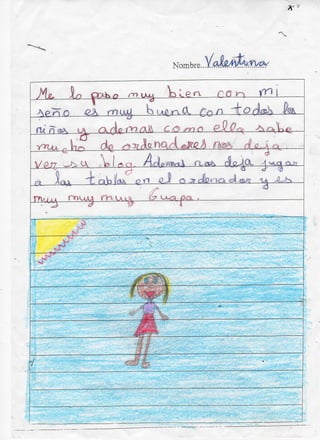 Nombre...Valentina
Me lo paso muy bien con mi
seño es muy buena con todos los
niños y ademas como ella sabe
mucho de ordenadores nos deja
ver su blog. Ademas nos deja jugar
a las tablas en el ordenador y es
muy muy muy Guapa.